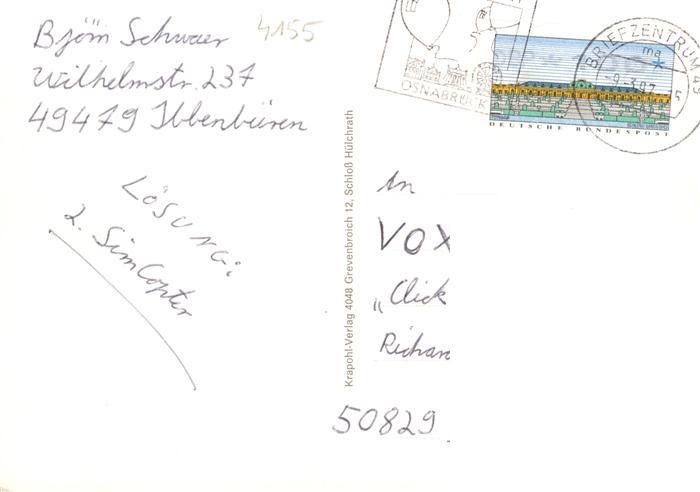 Björn Schwaer
Wilhelmstr. 237
49479 Ibbenbüren
4155
LÖSUNG:
2. SimCopter
Krapohl-Verlag 4048 Grevenbroich 12, Schloß Hülchrath
OSNABRÜCK
BRIEFZENTRUM 49
ma
DEUTSCHE BUNDESPOST
An
VOX
„Click
Richar
50829